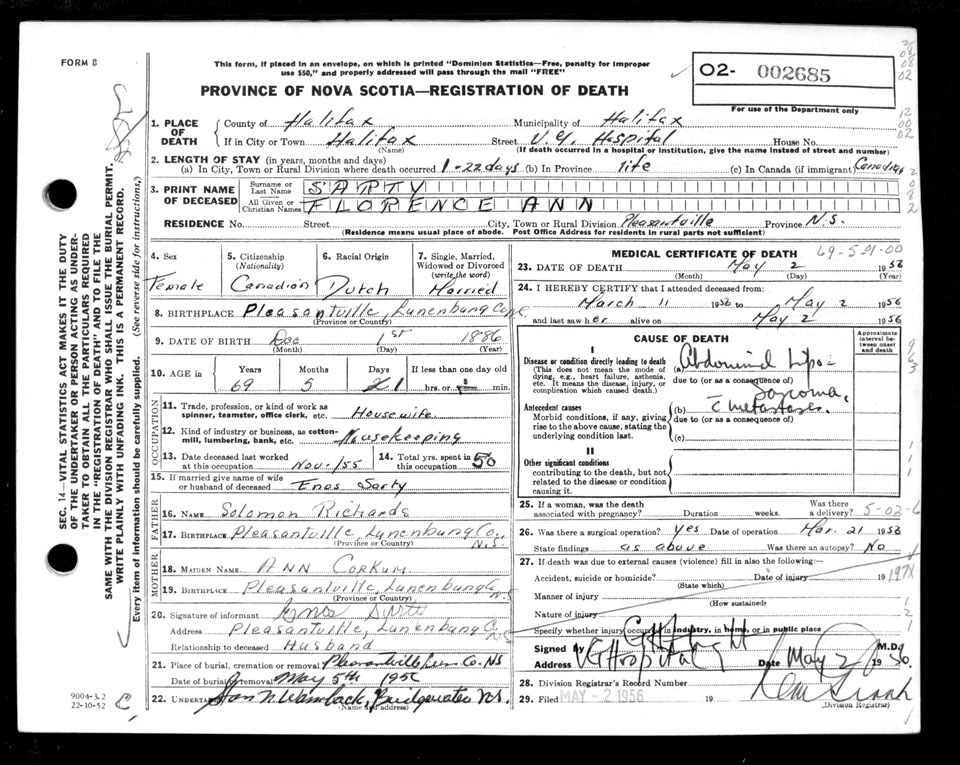 FORM 8
This form, if placed in an envelope, on which is printed "Dominion Statistics—Free, penalty for improper
use $50," and properly addressed will pass through the mail "FREE"
PROVINCE OF NOVA SCOTIA—REGISTRATION OF DEATH
O2- 002685
For use of the Department only
1. PLACE OF DEATH
County of Halifax Municipality of Halifax
If in City or Town Halifax Street V.G. Hospital House No.
(Name) (If death occurred in a hospital or institution, give the name instead of street and number)
2. LENGTH OF STAY (in years, months and days)
(a) In City, Town or Rural Division where death occurred 1-22 days (b) In Province life (c) In Canada (if immigrant) Canadian
3. PRINT NAME OF DECEASED
Surname or Last Name SARTY
All Given or Christian Names FLORENCE ANN
RESIDENCE No. Street City, Town or Rural Division Pleasantville Province N.S.
(Residence means usual place of abode. Post Office Address for residents in rural parts not sufficient)
4. Sex
Female
5. Citizenship
(Nationality)
Canadian
6. Racial Origin
Dutch
7. Single, Married,
Widowed or Divorced
(write the word)
Married
8. BIRTHPLACE Pleasantville, Lunenburg Co. N.S.
(Province or Country)
9. DATE OF BIRTH Dec 1st 1886
(Month) (Day) (Year)
10. AGE in
Years Months Days If less than one day old
69 5 1 hrs. or min.
OCCUPATION
11. Trade, profession, or kind of work as
spinner, teamster, office clerk, etc. Housewife
12. Kind of industry or business, as cotton-
mill, lumbering, bank, etc. Housekeeping
13. Date deceased last worked
at this occupation Nov-/55
14. Total yrs. spent in
this occupation 50
15. If married give name of wife
or husband of deceased Enos Sarty
FATHER
16. NAME Solomon Richards
17. BIRTHPLACE Pleasantville, Lunenburg Co., N.S.
(Province or Country)
MOTHER
18. MAIDEN NAME ANN CORKUM
19. BIRTHPLACE Pleasantville, Lunenburg Co N.S
(Province or Country)
20. Signature of informant Enos Sarty
Address Pleasantville, Lunenburg Co. N.S
Relationship to deceased Husband
21. Place of burial, cremation or removal Pleasantville Lun. Co. NS
Date of burial or removal May 5th 1956
22. UNDERTAKER Bridgewater N.S.
(Name and address)
MEDICAL CERTIFICATE OF DEATH
69-5-01-00
23. DATE OF DEATH May 2 1956
(Month) (Day) (Year)
24. I HEREBY CERTIFY that I attended deceased from:
March 11 1956 to May 2 1956
and last saw her alive on May 2 1956
CAUSE OF DEATH
Approximate
interval be-
tween onset
and death
I
Disease or condition directly leading to death
(This does not mean the mode of
dying, e.g., heart failure, asthenia,
etc. It means the disease, injury, or
complication which caused death.)
(a) Abdominal Lipo-
due to (or as a consequence of)
sarcoma
Antecedent causes
Morbid conditions, if any, giving
rise to the above cause, stating the
underlying condition last.
(b) c metastases.
due to (or as a consequence of)
(c)
II
Other significant conditions
contributing to the death, but not
related to the disease or condition
causing it.
25. If a woman, was the death
associated with pregnancy? Duration weeks. Was there
a delivery?
26. Was there surgical operation? Yes Date of operation Mar. 21 1956
State findings as above Was there an autopsy? No
27. If death was due to external causes (violence) fill in also the following:—
Accident, suicide or homicide? Date of injury 19
(State which)
Manner of injury
(How sustained)
Nature of injury
Specify whether injury occurred in industry, in home, or in public place
Signed by M.D.
Address VG Hospital Date May 2 1956.
28. Division Registrar's Record Number
29. Filed MAY - 2 1956 19
(Division Registrar)
SEC. 14—VITAL STATISTICS ACT MAKES IT THE DUTY
OF THE UNDERTAKER OR PERSON ACTING AS UNDER-
TAKER TO OBTAIN ALL THE PARTICULARS REQUIRED
IN THE "REGISTRATION OF DEATH" AND TO FILE THE
SAME WITH THE DIVISION REGISTRAR WHO SHALL ISSUE THE BURIAL PERMIT.
WRITE PLAINLY WITH UNFADING INK. THIS IS A PERMANENT RECORD.
Every item of information should be carefully supplied. (See reverse side for instructions.)
9004-3.2
22-10-52